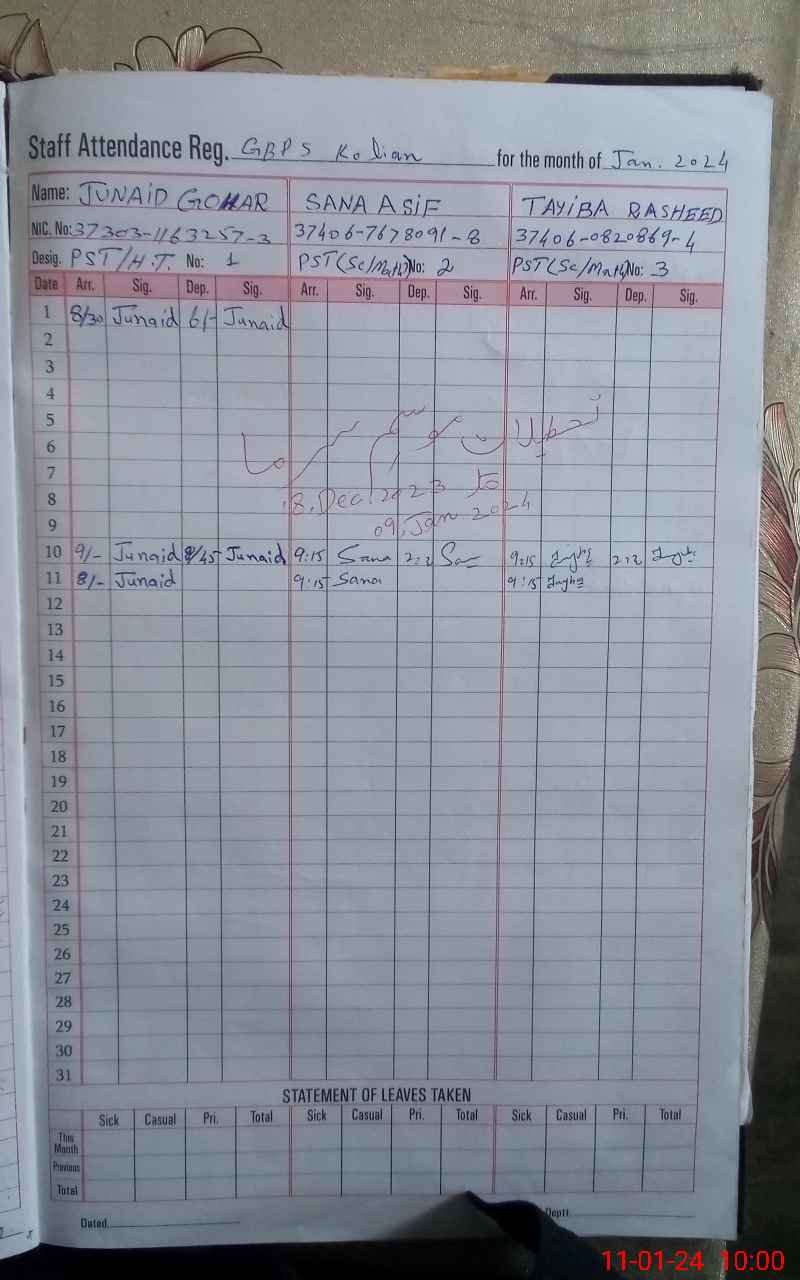 Staff Attendance Reg. GBPS Kolian for the month of Jan. 2024
Name: JUNAID GOHAR SANA ASIF TAYIBA RASHEED
NIC. No: 37303-1163257-3 37406-7678091-8 37406-0820869-4
Desig. PST/H.T. No: 1 PST(Sc/Math) No: 2 PST(Sc/Math) No: 3
Date Arr. Sig. Dep. Sig. Arr. Sig. Dep. Sig. Arr. Sig. Dep. Sig.
1 8/30 Junaid 6/- Junaid
2
3
4
5
تعطیلات موسم سرما
6
7
8
18, Dec. 2023 تا
9
09, Jan 2024
10 9/- Junaid Junaid 9:15 Sana 9:15
11 8/- Junaid 9:15 Sana 9:15
12
13
14
15
16
17
18
19
20
21
22
23
24
25
26
27
28
29
30
31
STATEMENT OF LEAVES TAKEN
Sick Casual Pri. Total Sick Casual Pri. Total Sick Casual Pri. Total
This Month
Previous
Total
Dated Deptt.
11-01-24 10:00